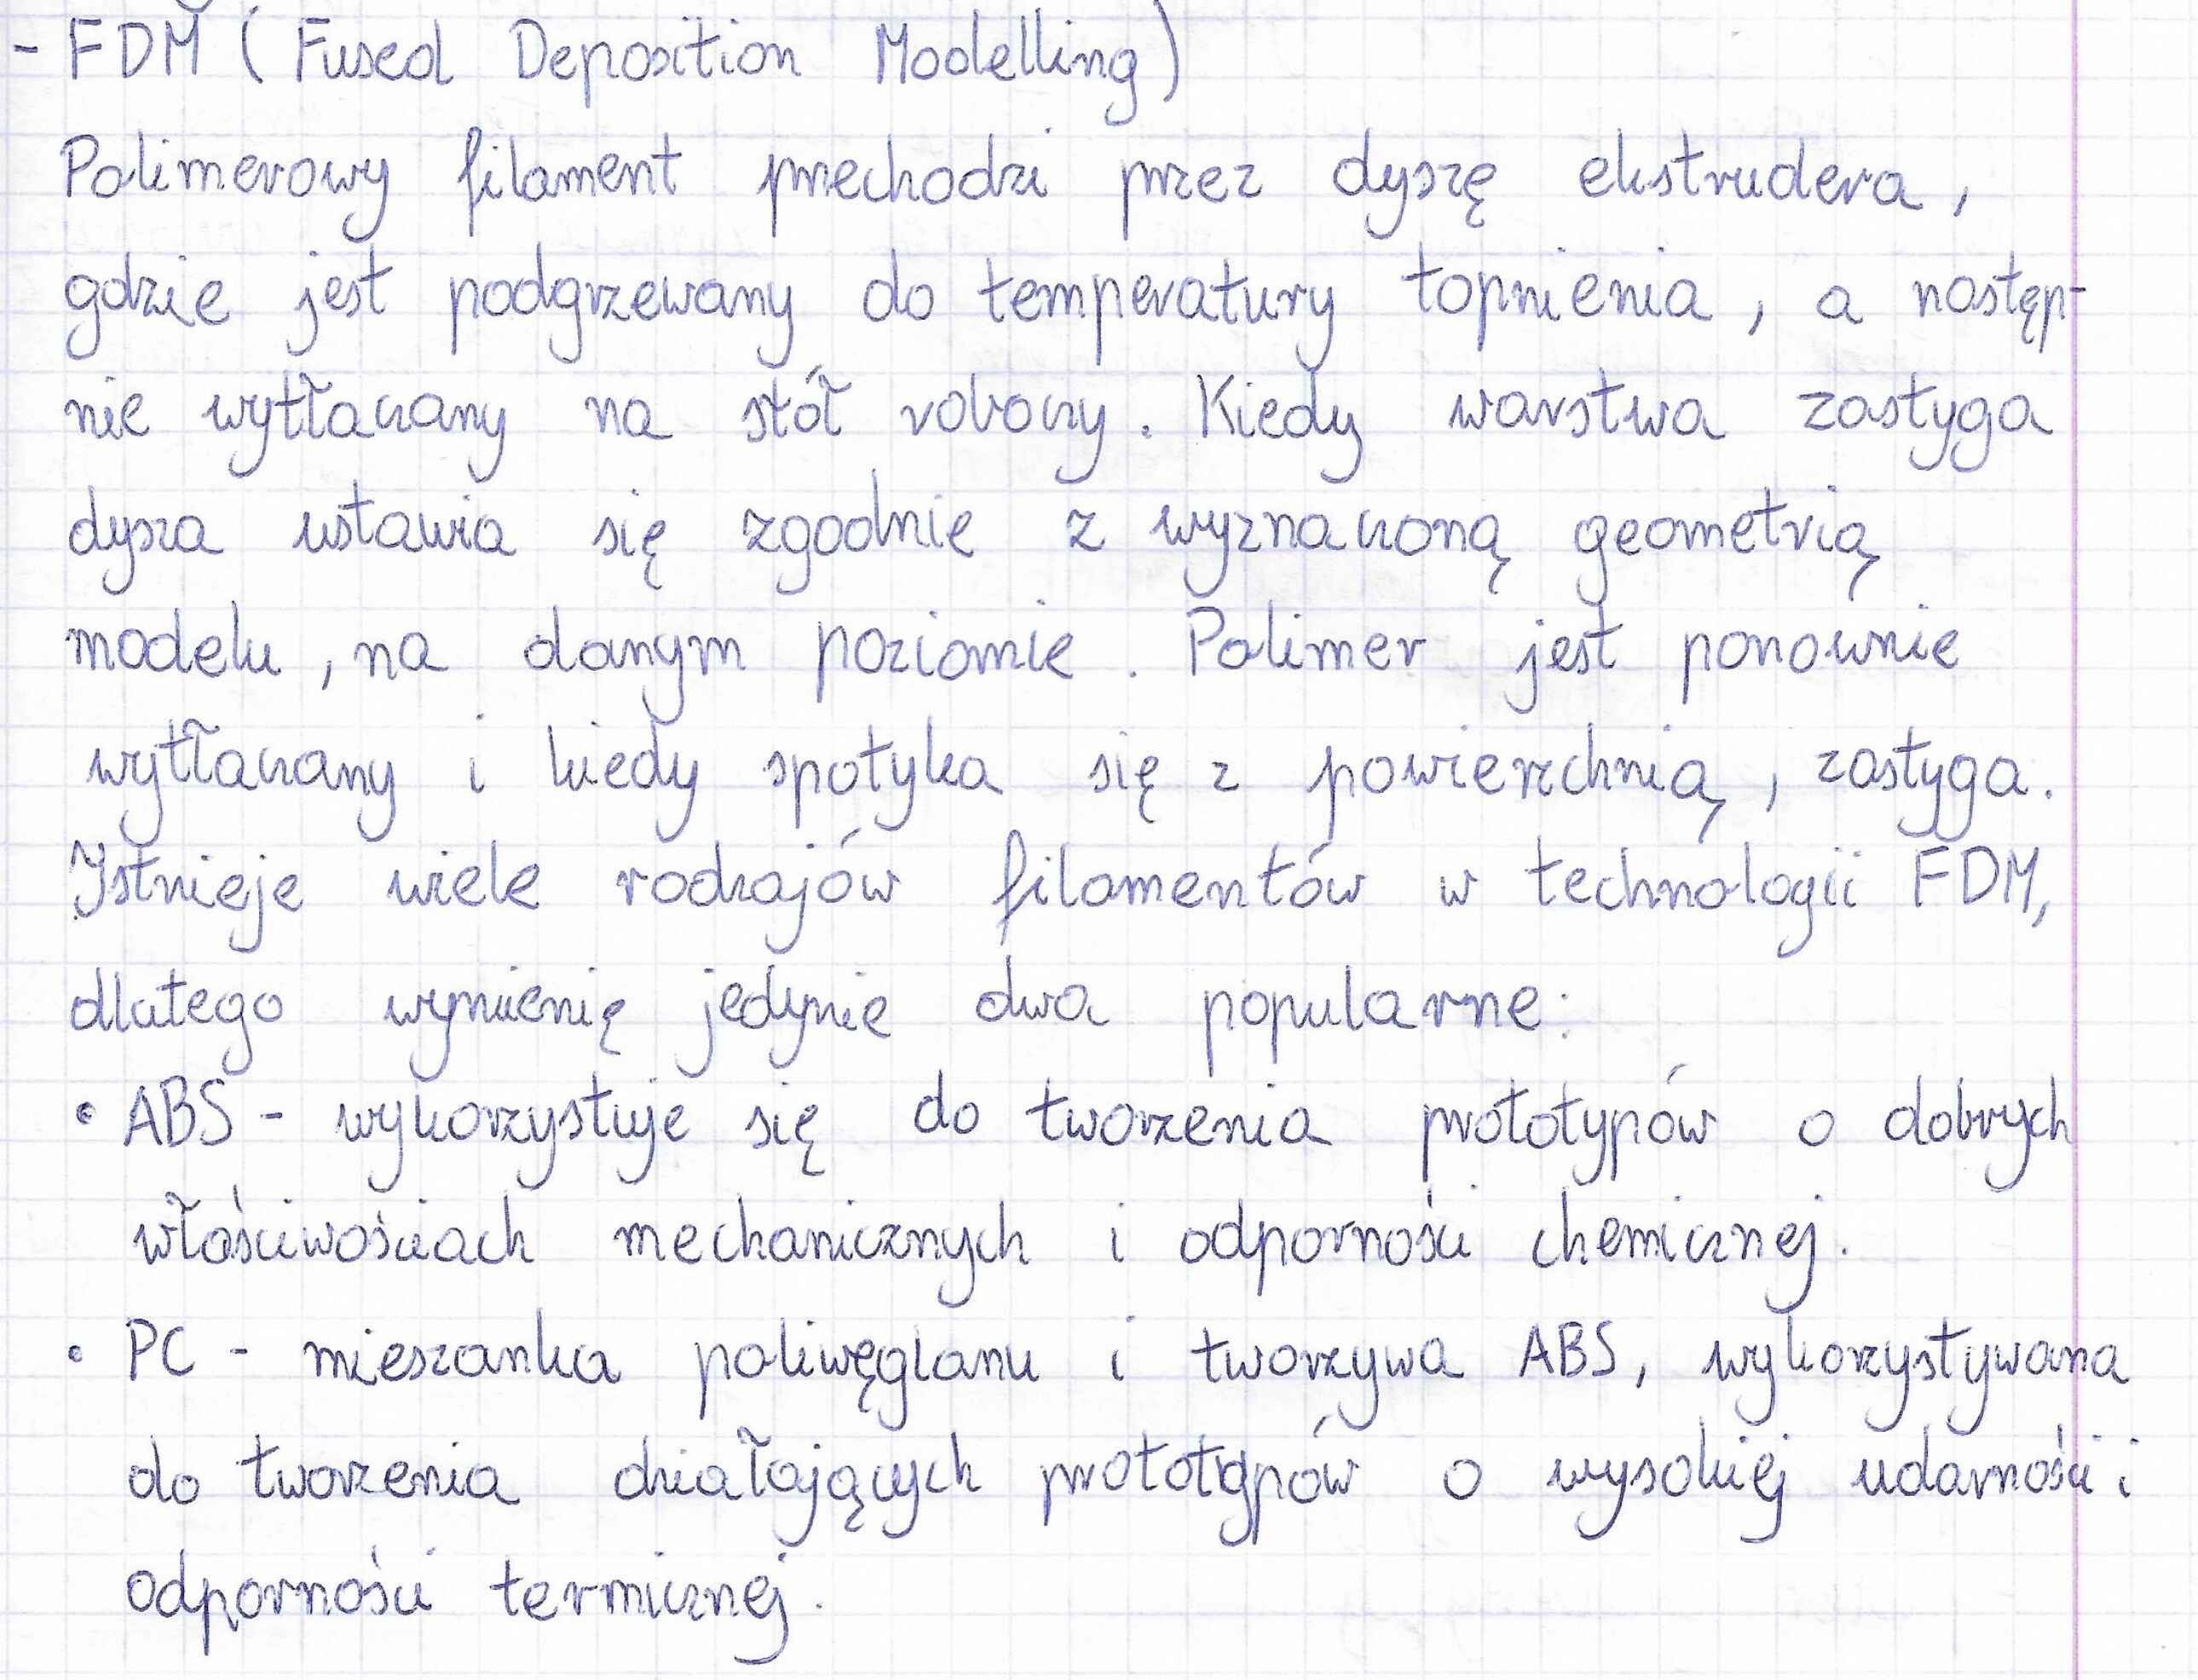 - FDM (Fused Deposition Modelling)
Polimerowy filament przechodzi przez dyszę ekstrudera,
gdzie jest podgrzewany do temperatury topnienia, a następ-
nie wytłaczany na stół roboczy. Kiedy warstwa zastyga
dysza ustawia się zgodnie z wyznaczoną geometrią
modelu, na danym poziomie. Polimer jest ponownie
wytłaczany i kiedy spotyka się z powierzchnią, zastyga.
Istnieje wiele rodzajów filamentów w technologii FDM,
dlatego wymienię jedynie dwa popularne:
• ABS - wykorzystuje się do tworzenia prototypów o dobrych
właściwościach mechanicznych i odporności chemicznej.
• PC - mieszanka poliwęglanu i tworzywa ABS, wykorzystywana
do tworzenia działających prototypów o wysokiej udarności i
odporności termicznej.